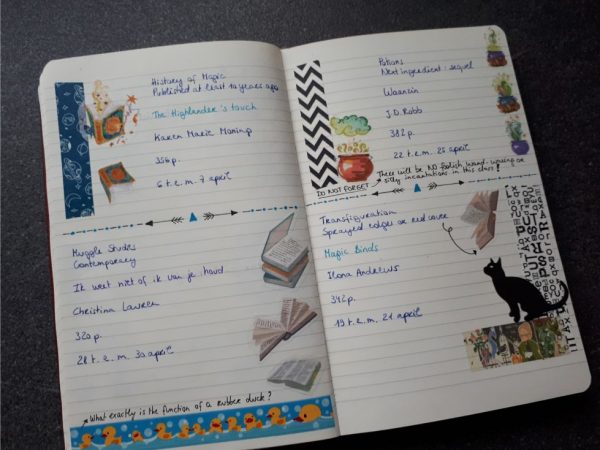 History of Magic
Published at least 10 years ago
The Highlander's touch
Karen Marie Moning
356 p.
6 t.e.m. 7 april
Muggle Studies
Contemporary
Ik weet niet of ik van je houd
Christina Lauren
320 p.
28 t.e.m. 30 april
What exactly is the function of a rubber duck?
Potions
Next ingredient: sequel
Waanzin
J.D. Robb
382 p.
22 t.e.m. 25 april
DO NOT FORGET
There will be NO foolish wand-waving or
silly incantations in this class!
Transfiguration
Sprayed edges or red cover
Magic Binds
Ilona Andrews
342 p.
19 t.e.m. 21 april